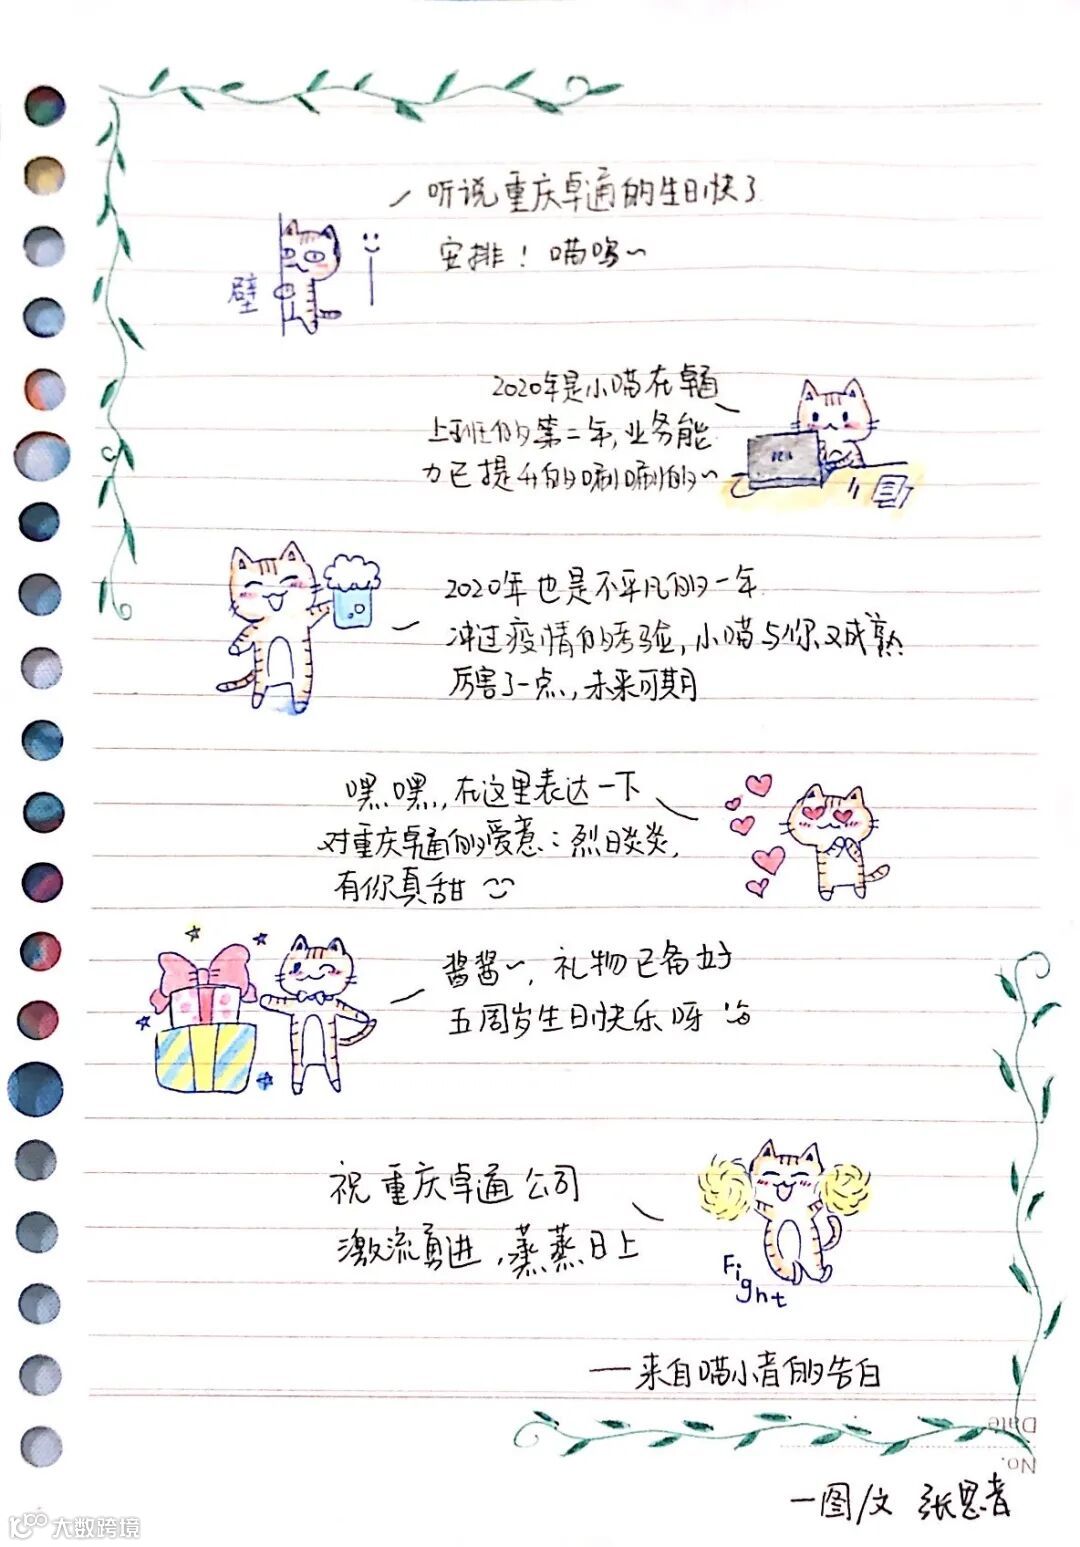 听说重庆卓通的生日快了
安排！喵呜~
壁
2020年是小喵在卓通
上班的第二年,业务能
力已提升的唰唰的~
2020年也是不平凡的一年
冲过疫情的考验,小喵与你又成熟
厉害了一点,未来可期
嘿嘿,在这里表达一下
对重庆卓通的爱意:烈日炎炎,
有你真甜
酱酱~,礼物已备好
五周岁生日快乐呀
祝重庆卓通公司
激流勇进,蒸蒸日上
Fight
——来自喵小音的告白
Date
No.
—图/文 张思音
大数跨境